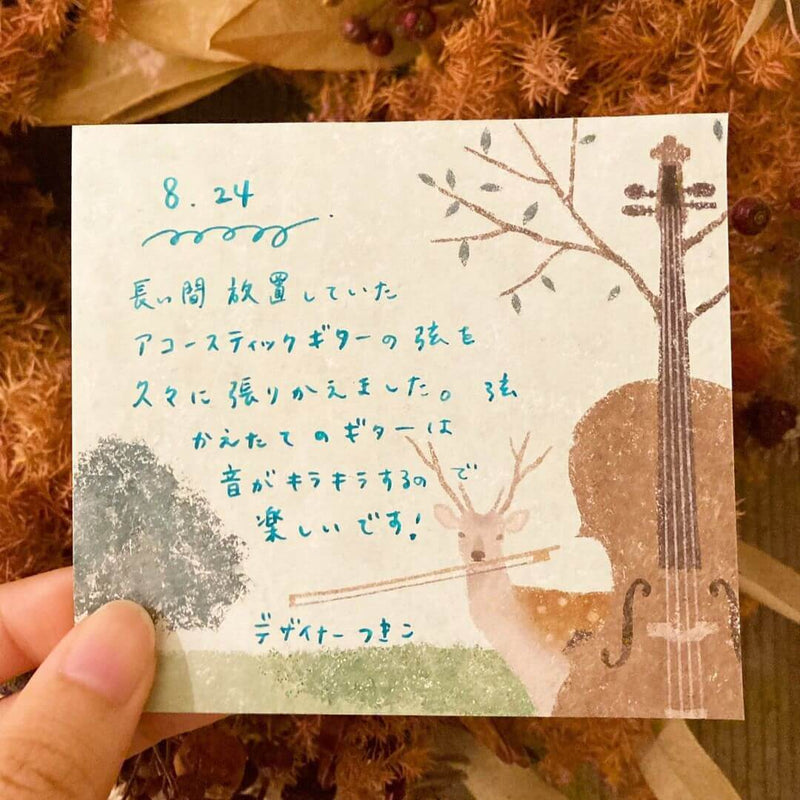 8.24
長い間放置していた
アコースティックギターの弦を
久々に張りかえました。弦
かえたてのギターは
音がキラキラするので
楽しいです!
デザイナーつきこ